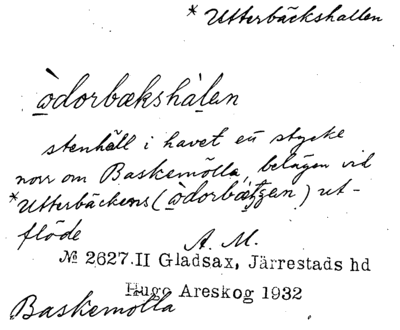 * Utterbäckshallen
òdorbækshàlen
stenhäll i havet ett stycke
norr om Baskemölla, belägen vid
*Utterbäckens (òdorbætjen) ut-
flöde
A. M.
№ 2627.II Gladsax, Järrestads hd
Hugo Areskog 1932
Baskemölla